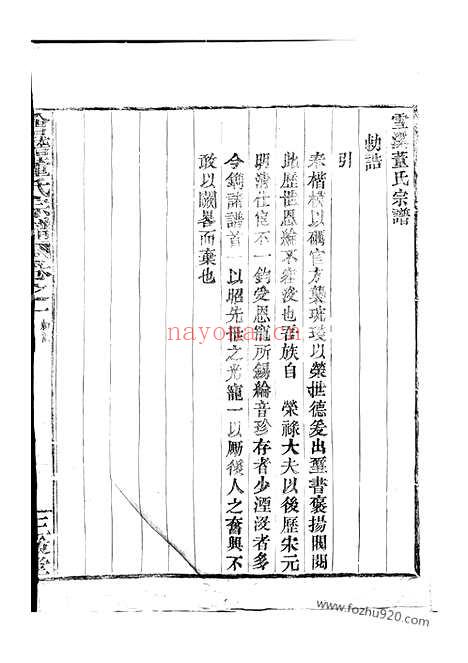 雪深董氏宗譜
勅誥
引
奉楷模以礪官方襲琉璪以榮世德爰出璽書褒揚閥閱
此歷世恩綸不容沒也吾族自 榮祿大夫以後歷宋元
明清仕宦不一鈞受恩寵所錫綸音珍存者少湮沒者多
今鐫諸譜首一以昭先世之光寵一以勵後人之奮興不
敢以闕畧而棄也
董氏宗譜 卷之一
三 堂
nayona.cn
www.fozhu920.com